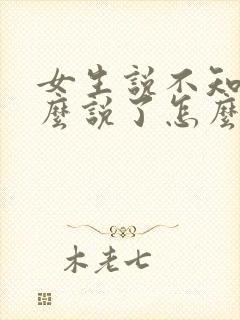 女生說不知
麼說了怎麼
木老七